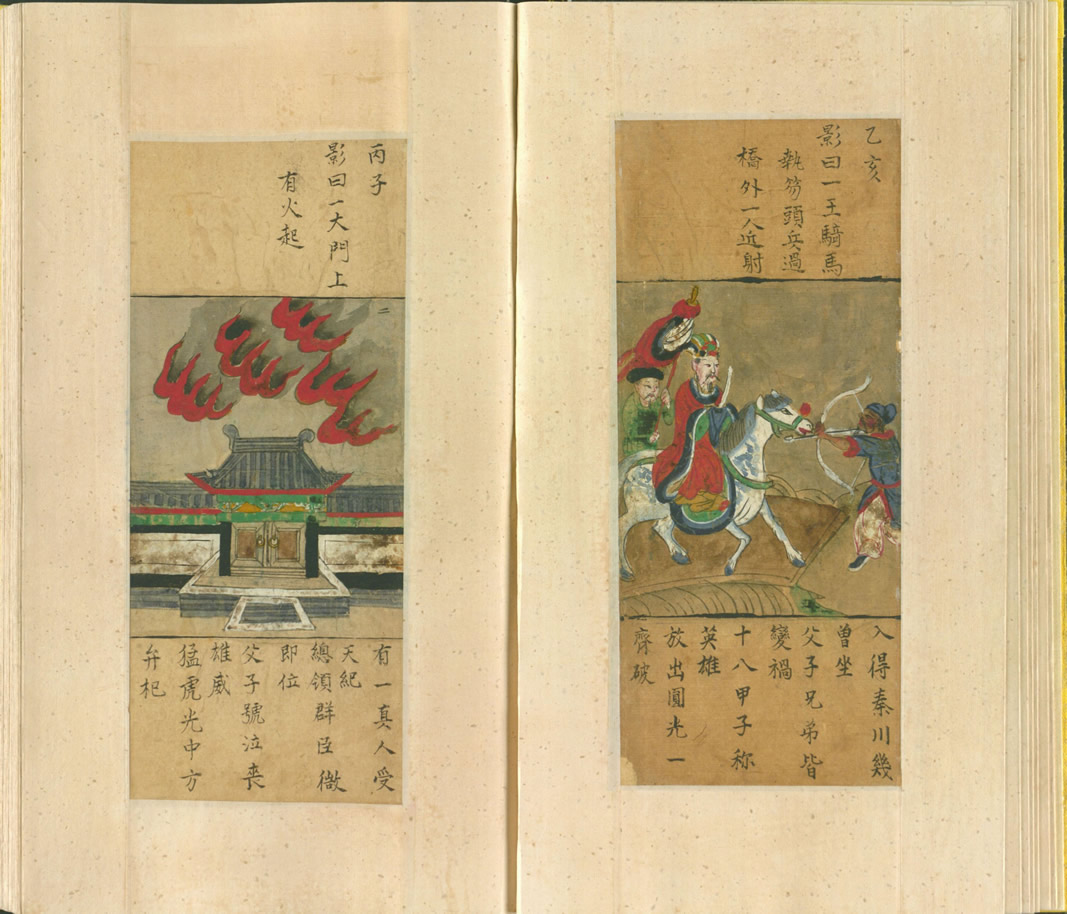 乙亥
影曰一王騎馬
執笏頭兵過
橋外一人近射
入得秦川幾
曾坐
父子兄弟皆
變禍
十八甲子称
英雄
放出圓光一
齊破
丙子
影曰一大門上
有火起
二
有一真人受
天紀
總領群臣
即位
父子號泣喪
雄威
猛虎光中方
弁杞